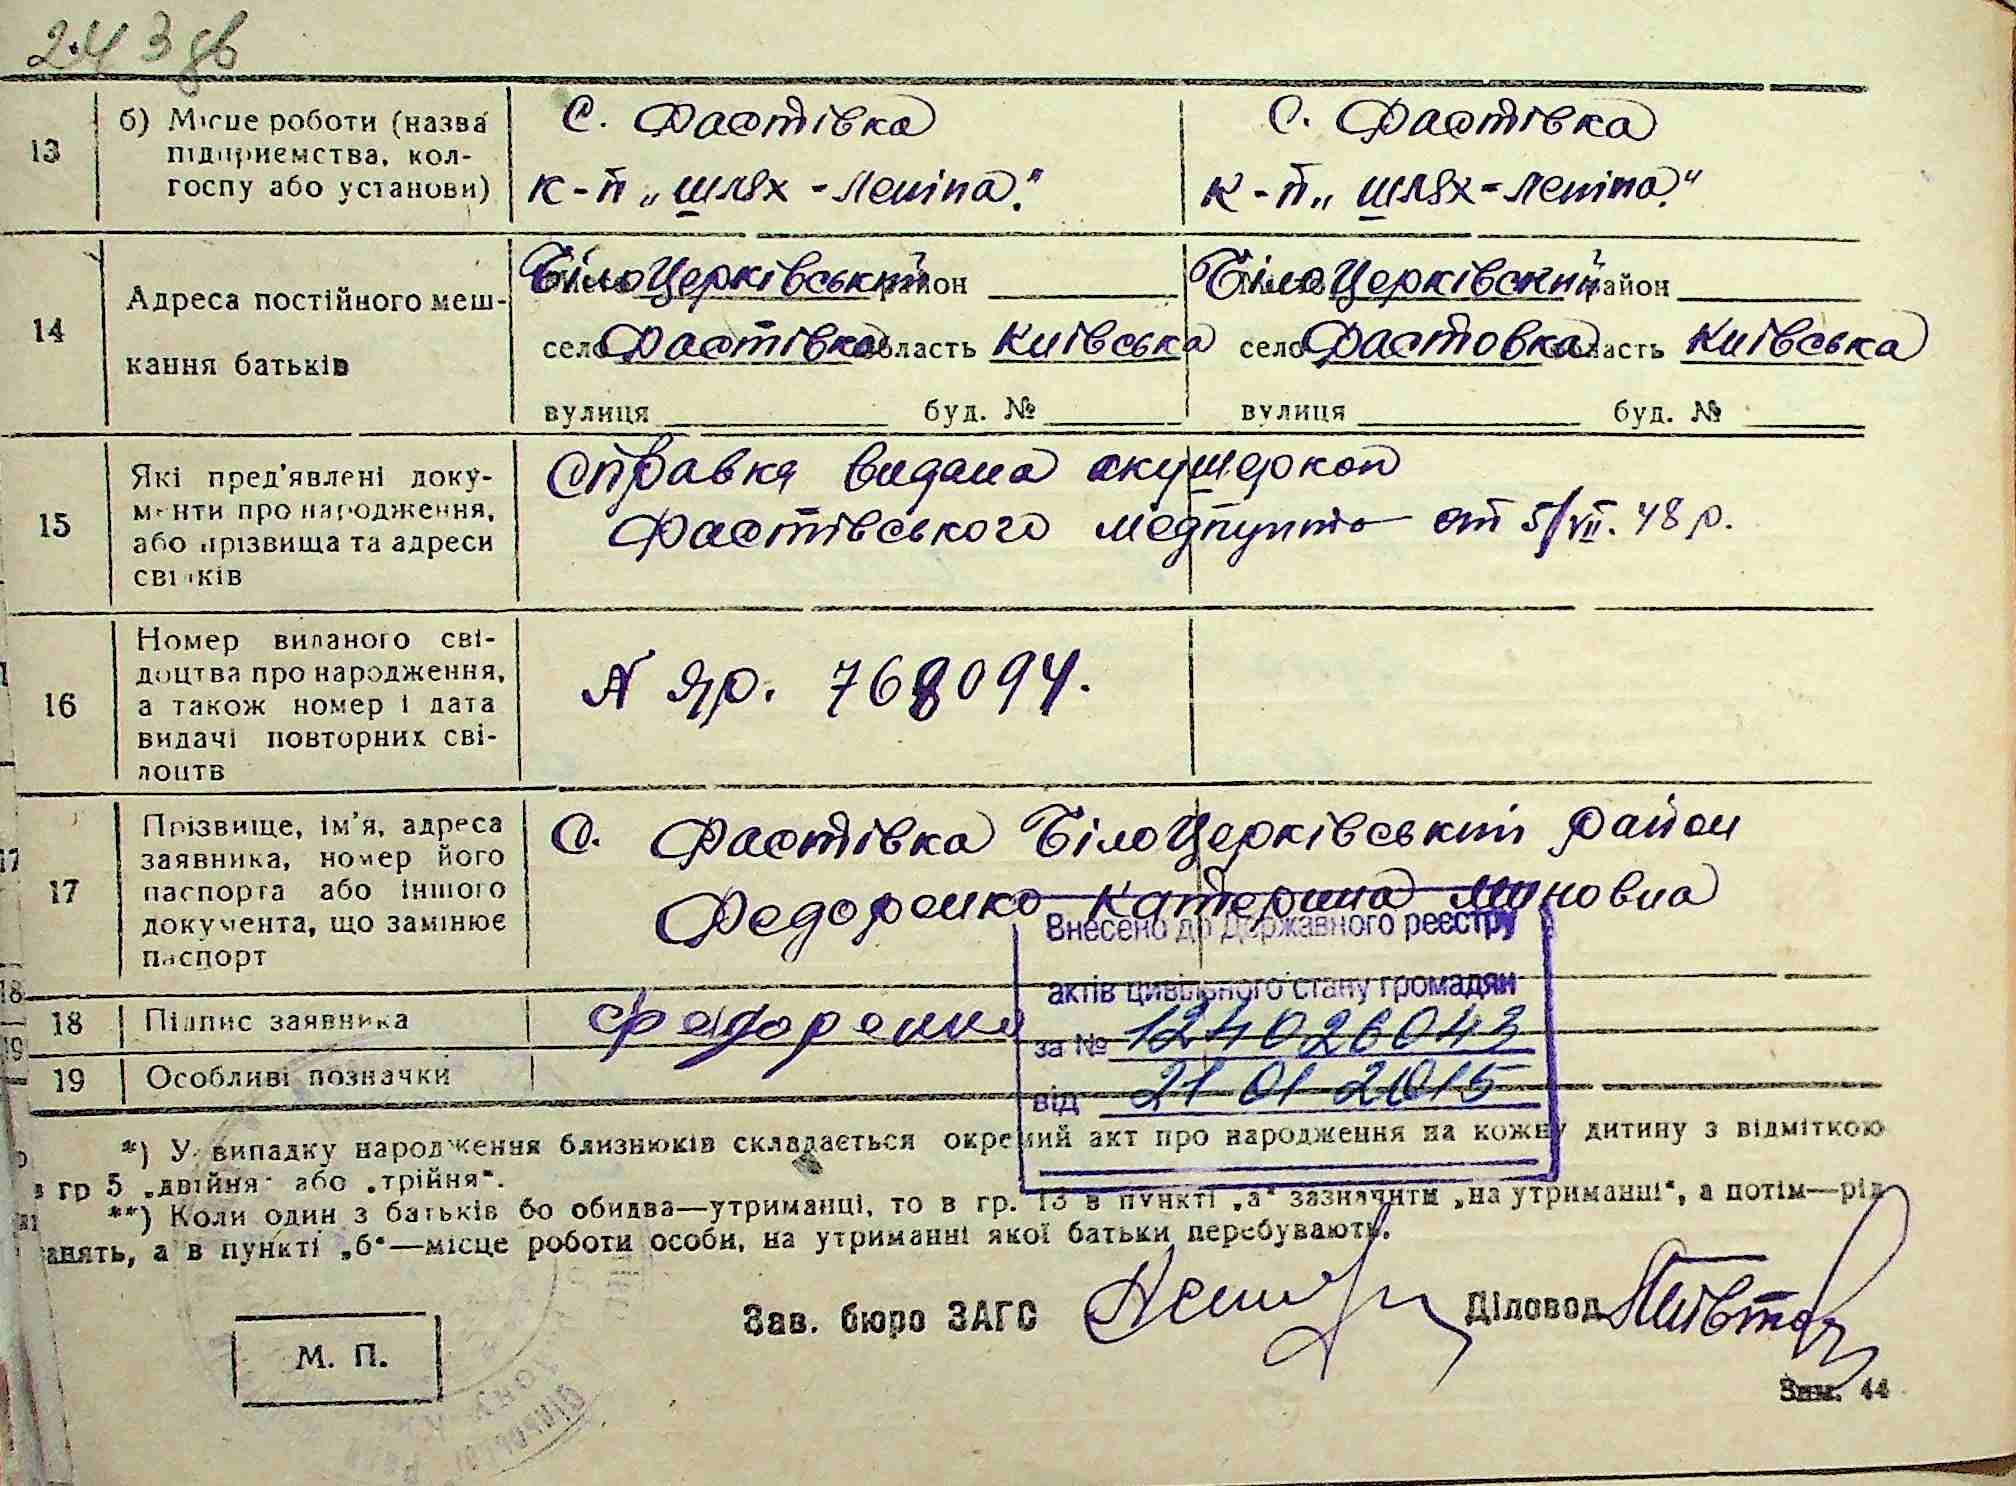 243 дв
13 б) Місце роботи (назва підприємства, кол-госпу або установи)
с. Фастівка
к-п „Шлях-Леніна."
с. Фастівка
к-п „Шлях-Леніна."
14 Адреса постійного меш-
кання батьків
БілоЦерківський район
село Фастівка область Київська
вулиця буд. №
БілоЦерківский район
село Фастовка область Київська
вулиця буд. №
15 Які пред'явлені доку-
менти про народження,
або прізвища та адреси
свідків
Справка видана акушеркой
Фастівського медпункта от 5/VII. 48 р.
16 Номер виданого сві-
доцтва про народження,
а також номер і дата
видачі повторних сві-
доцтв
Яр. 768094.
17 Прізвище, ім'я, адреса
заявника, номер його
паспорта або іншого
документа, що замінює
паспорт
с. Фастівка БілоЦерківський район
Федоренко Катерина Миновна
Внесено до Державного реєстру
актів цивільного стану громадян
за № 124026043
від 21 01 2015
18 Підпис заявника
Федоренко
19 Особливі позначки
*) У випадку народження близнюків складається окремий акт про народження на кожну дитину з відміткою
в гр 5 „двійня" або „трійня".
**) Коли один з батьків бо обидва—утриманці, то в гр. 13 в пункті „а" зазначити „на утриманці", а потім—рід
занять, а в пункті „б"—місце роботи особи, на утриманні якої батьки перебувають.
Зав. бюро ЗАГС
Діловод
М. П.
Зам. 44